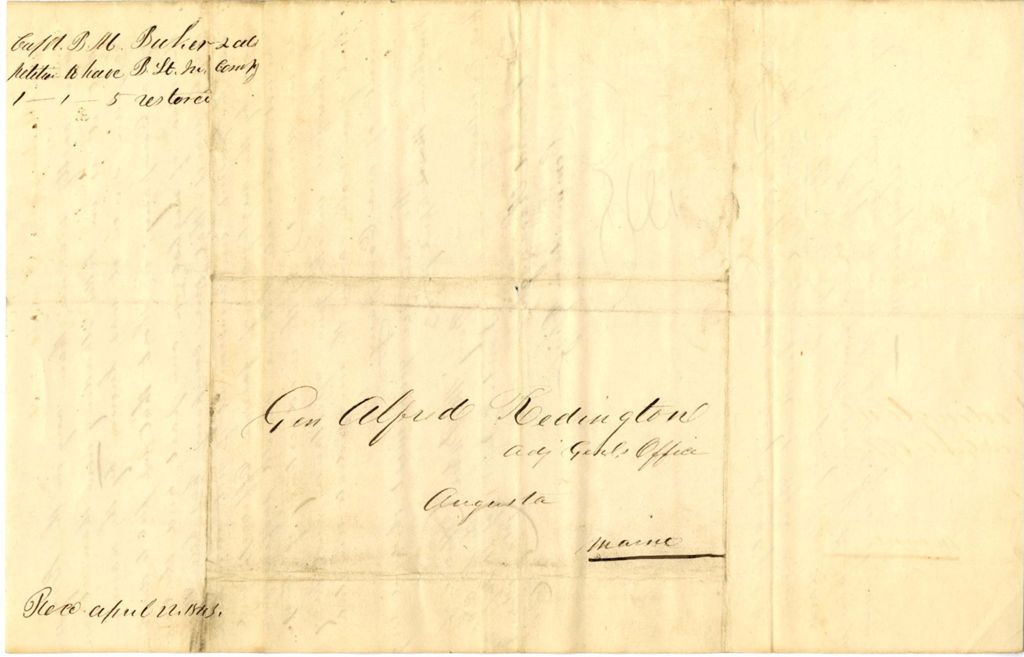 Capt. B. M. Baker & als
Petition to have B. Lt. In. Comp'y
1 — 1 — 5 restored
Gen Alfred Redington
Adj Genls Office
Augusta
Maine
Recd April 12. 1843.